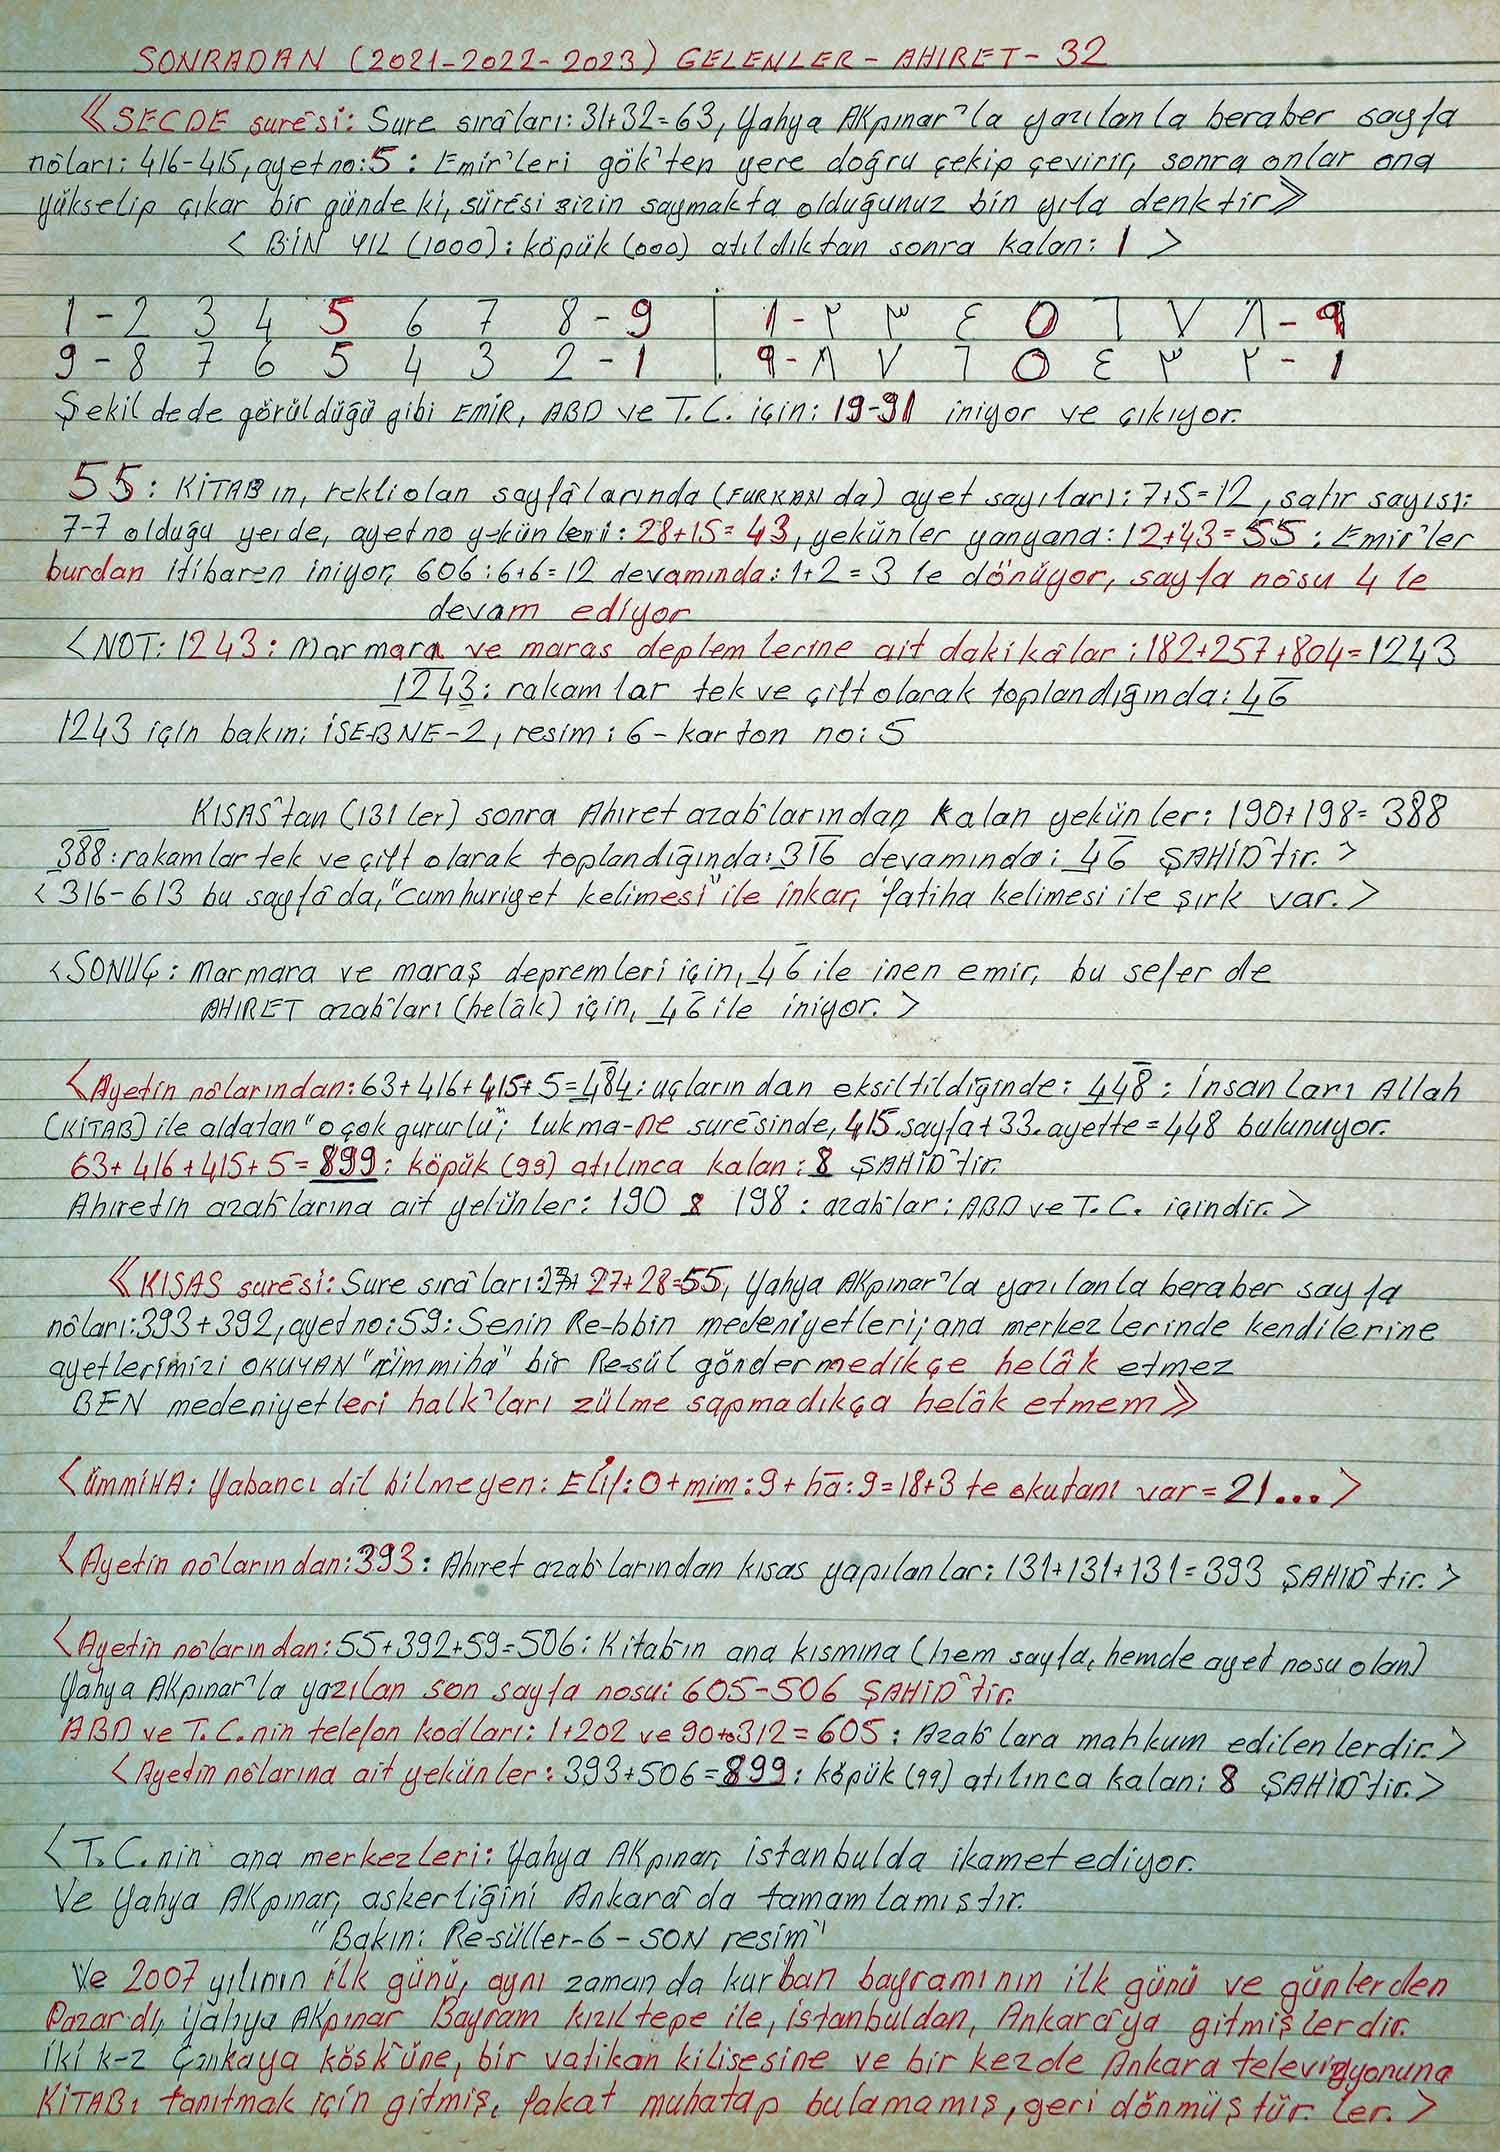 SONRADAN (2021-2022-2023) GELENLER - AHIRET - 32
《SECDE surêsi: Sure sırâları: 31+32=63, Yahya AKpınar'la yazılanla beraber sayfa
nôları: 416-415, ayet no: 5 : Emir'leri gök'ten yere doğru çekip çevirir, sonra onlar ona
yükselip çıkar bir günde ki, sürêsi sizin saymakta olduğunuz bin yıla denktir》
< BİN YIL (1000): köpük (000) atıldıktan sonra kalan: 1 >
1 - 2 3 4 5 6 7 8 - 9 | ١ - ٢ ٣ ٤ ٥ ٦ ٧ ٨ - ٩
9 - 8 7 6 5 4 3 2 - 1 | ٩ - ٨ ٧ ٦ ٥ ٤ ٣ ٢ - ١
Şekil dede görüldüğü gibi EMİR, ABD ve T.C. için: 19-91 iniyor ve çıkıyor.
55: KİTAB ın, rekliolan sayfâlarında (FURKAN da) ayet sayıları: 7+5=12, satır sayısı:
7-7 olduğu yerde, ayet no yekünleri: 28+15=43, yekünler yanyana: 12+43=55 : Emir'ler
burdan itibaren iniyor, 606:6+6=12 devamında: 1+2=3 le dönüyor, sayfa nôsu 4 le
devam ediyor
<NOT: 1243: Marmara ve maras deplemlerine ait dakikâlar: 182+257+804=1243
1243: rakamlar tek ve çift olarak toplandığında: 46
1243 için bakın: İSEBNE-2, resim: 6 - karton no: 5
KISAS'tan (131 ler) sonra Ahıret azab'larından kalan yekünler: 190+198=388
388: rakamlar tek ve çift olarak toplandığında: 316 devamında: 46 ŞAHİD'tir. >
<316-613 bu sayfâda, "cumhuriyet kelimesi" ile inkar, fatiha kelimesi ile şırk var. >
<SONUÇ: Marmara ve maraş depremleri için, 46 ile inen emir, bu sefer de
AHIRET azab'ları (helâk) için, 46 ile iniyor. >
<Ayetin nôlarından: 63+416+415+5=484: uçların dan eksiltildiğinde: 448 : İnsanları Allah
(KİTAB) ile aldatan "o çok gururlu"; Lukma-ne surêsinde, 415. sayfa + 33. ayette = 448 bulunuyor.
63+416+415+5=899: köpük (99) atılınca kalan: 8 ŞAHİD'tir.
Ahıretin azab'larına ait yekünler: 190 8 198 : azab'lar: ABD ve T.C. içindir. >
《KISAS surêsi: Sure sırâları: 27+ 27+28=55, Yahya AKpınar'la yazılanla beraber sayfa
nôları: 393+392, ayet no: 59: Senin Re-bbin medeniyetleri; ana merkezlerinde kendilerine
ayetlerimizi OKUYAN "ümmiha" bir Re-sül göndermedikçe helâk etmez
BEN medeniyetleri halk'ları zülme sapmadıkça helâk etmem》
<ÜMMİHA: Yabancı dil bilmeyen: Elif: 0 + mim: 9 + hā: 9=18+3 te okutanı var = 21... >
<Ayetin nôlarından: 393: Ahıret azab'larından kısas yapılanlar: 131+131+131=393 ŞAHİD'tir. >
<Ayetin nôlarından: 55+392+59=506: Kitab'ın ana kısmına (hem sayfa, hemde ayet nosu olan)
Yahya AKpınar'la yazılan son sayfa nosu: 605-506 ŞAHİD'tir.
ABD ve T.C.nin telefon kodları: 1+202 ve 90+312=605: Azab'lara mahkum edilenlerdir. >
<Ayetin nôlarına ait yekünler: 393+506=899: köpük (99) atılınca kalan: 8 ŞAHİD'tir. >
<T.C.nin ana merkezleri: Yahya AKpınar, istanbulda ikamet ediyor.
Ve Yahya AKpınar, askerliğini Ankara'da tamamlamıştır.
"Bakın: Re-süller-6 - SON resim"
Ve 2007 yılının ilk günü, aynı zaman da kurban bayramının ilk günü ve günlerden
Pazar'dı, Yahya AKpınar Bayram kızıltepe ile, istanbuldan, Ankara'ya gitmişlerdir.
iki k-z Çankaya kösk'üne, bir vatikan kilisesine ve bir kezde Ankara televizyonuna
KİTABı tanıtmak için gitmiş, fakat muhatap bulamamış, geri dönmüştür. ler. >